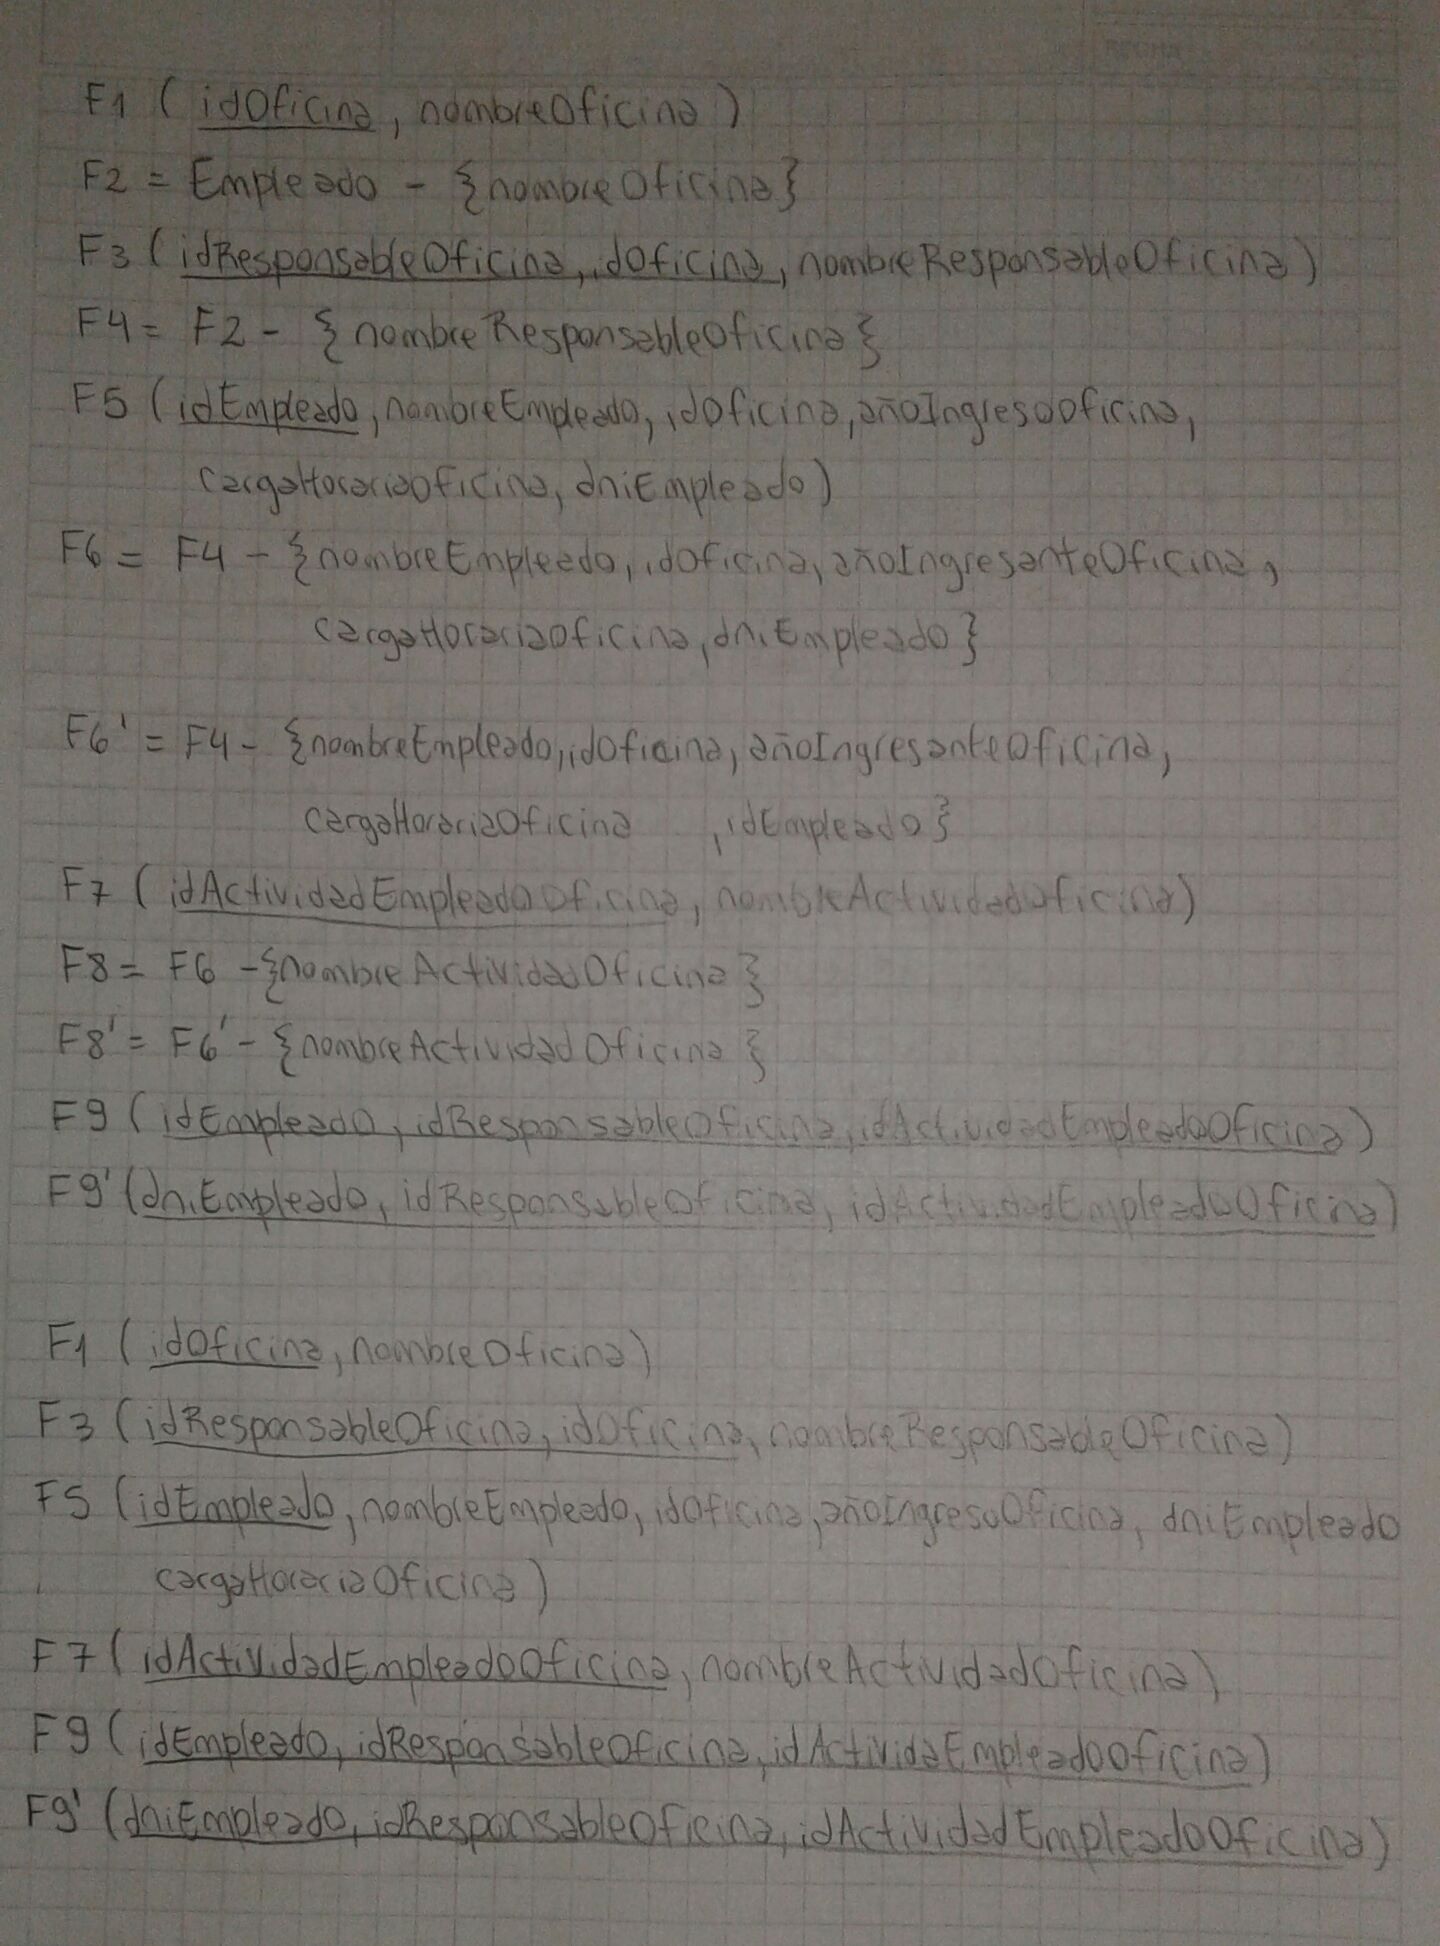 F1 ( idOficina, nombreOficina )
F2 = Empleado - {nombreOficina}
F3 ( idResponsableOficina, idOficina, nombreResponsableOficina )
F4 = F2 - { nombreResponsableOficina }
F5 ( idEmpleado, nombreEmpleado, idOficina, añoIngresoOficina,
cargaHorariaOficina, dniEmpleado )
F6 = F4 - { nombreEmpleado, idOficina, añoIngresanteOficina,
cargaHorariaOficina, dniEmpleado }
F6' = F4 - { nombreEmpleado, idOficina, añoIngresanteOficina,
cargaHorariaOficina , idEmpleado }
F7 ( idActividadEmpleadoOficina, nombreActividadOficina )
F8 = F6 - { nombreActividadOficina }
F8' = F6' - { nombreActividadOficina }
F9 ( idEmpleado, idResponsableOficina, idActividadEmpleadoOficina )
F9' ( dniEmpleado, idResponsableOficina, idActividadEmpleadoOficina )
F1 ( idOficina, nombreOficina )
F3 ( idResponsableOficina, idOficina, nombreResponsableOficina )
F5 ( idEmpleado, nombreEmpleado, idOficina, añoIngresoOficina, dniEmpleado
cargaHorariaOficina )
F7 ( idActividadEmpleadoOficina, nombreActividadOficina )
F9 ( idEmpleado, idResponsableOficina, idActividaEmpleadoOficina )
F9' ( dniEmpleado, idResponsableOficina, idActividadEmpleadoOficina )